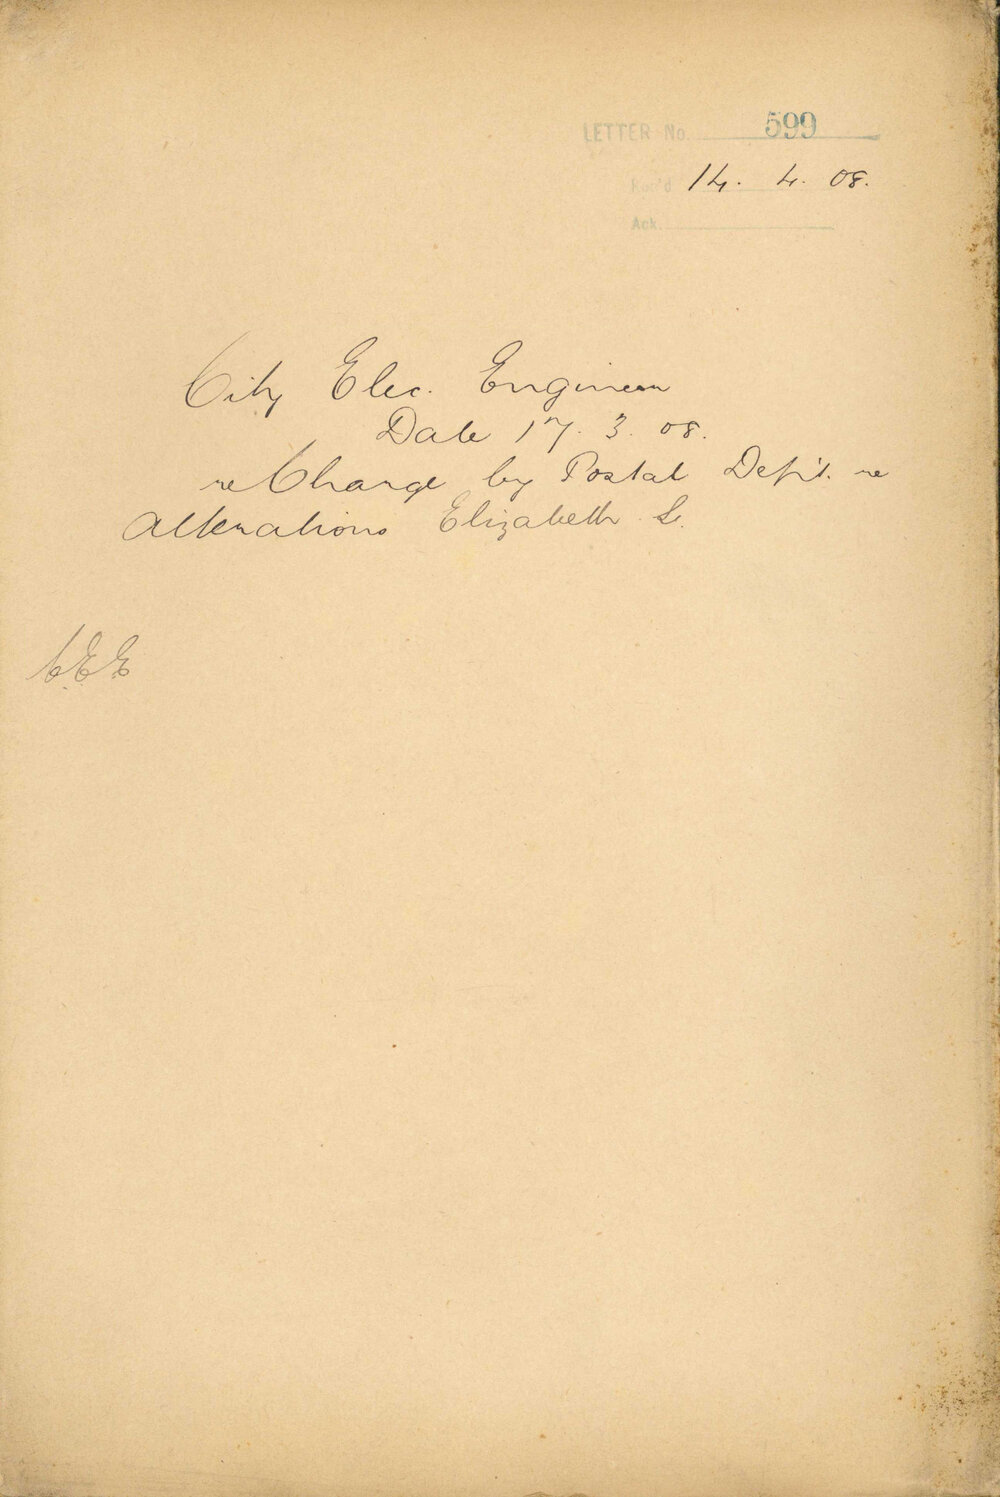 LETTER No. 599
Rec'd 14. 4. 08.
Ack.
City Elec. Engineer
Date 17. 3. 08.
re Charge by Postal Dept. re
Alterations Elizabeth St.
C.E.E